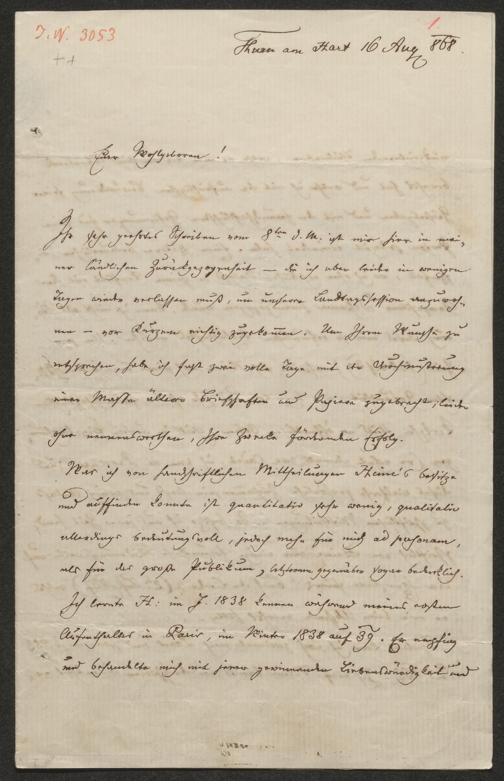 I. N. 3053
1.
Thurn am Hart 16 Aug 868.
Euer Wohlgeboren!
Ihr sehr geehrtes Schreiben vom 8ten d. M. ist mir hier in mei-
ner ländlichen Zurückgezogenheit – die ich aber leider in wenigen
Tagen wieder verlassen muß, um unserer Landtagssession anzuwoh-
nen – vor Kurzem richtig zugekommen. Um Ihrem Wunsche zu
entsprechen, habe ich fast zwei volle Tage mit der Durchmusterung
einer Masse älterer Briefschaften und Papiere zugebracht, leider
ohne nennenswerthen, Ihre Zwecke fördernden Erfolg.
Was ich von handschriftlichen Mittheilungen Heine's besitze
und auffinden konnte ist quantitativ sehr wenig, qualitativ
allerdings bedeutungsvoll, jedoch mehr für mich ad personam,
als für das große Publikum, letzterem gegenüber sogar bedenklich.
Ich lernte H: im J. 1838 kennen während meines ersten
Aufenthaltes in Paris, im Winter 1838 auf 39. Er empfing
und behandelte mich mit jener gewinnenden Liebenswürdigkeit und